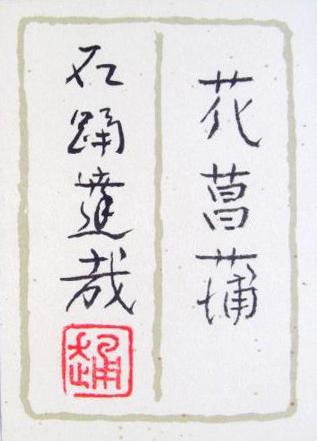 花菖蒲
石踊達哉